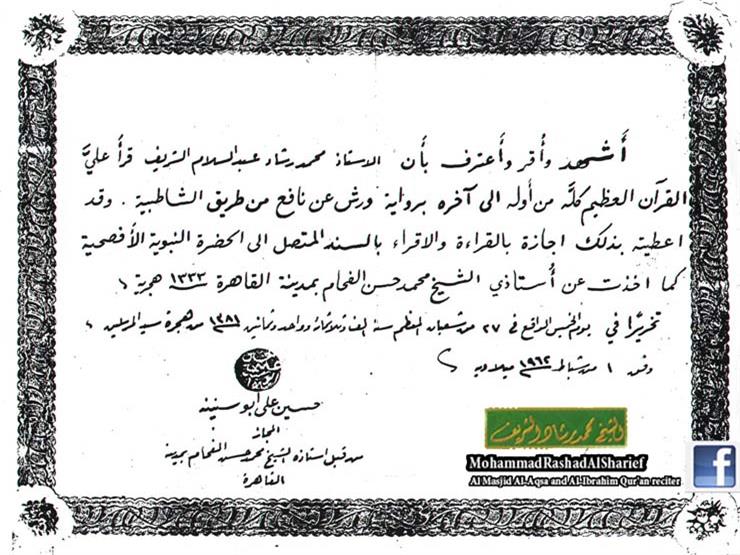 أشهد وأقر وأعترف بأن الاستاذ محمد رشاد عبد السلام الشريف قرأ عليَّ
القرآن العظيم كلَّه من أوله الى آخره برواية ورش عن نافع من طريق الشاطبية . وقد
اعطيته بذلك اجازة بالقراءة والاقراء بالسند المتصل الى الحضرة النبوية الأفصحية
كما اخذت عن أُستاذي الشيخ محمد حسن الفحام بمدينة القاهرة ١٣٣٣ هجرية ،
تحريرًا في يوم الخميس الواقع في ٢٧ من شعبان المعظم سنة الف وثلاثمائة وواحد وثمانين ١٣٨١ من هجرة سيد المرسلين ،
وفق ١ من شباط ١٩٦٢ ميلادية
حسين علي ابو سنينه
المجاز
من قبل استاذه الشيخ محمد حسن الفحام بمدينة
القاهرة
الشيخ محمد رشاد الشريف
MohammadRashadAlSharief
Al Masjid Al-Aqsa and Al-Ibrahim Qur'an reciter
f